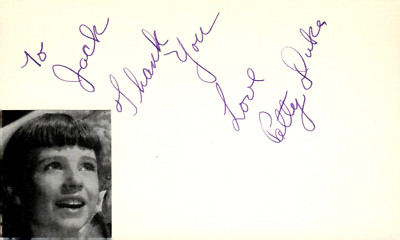 To Jack
Thank You
Love
Patty Duke